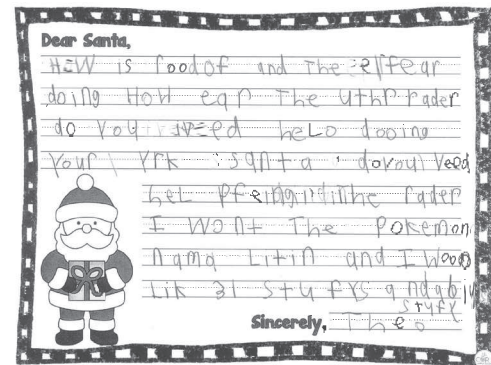 Dear Santa,
HEW is roodof and The elfear
doing How ear The uthr rader
do you veed heLo dooing
your yrk santa doyou veed
heL The rader
I Wont The Pokemon
nama Litin and I Wood
Lik 31 stufys and a biy
stufy
Sincerely, Theo